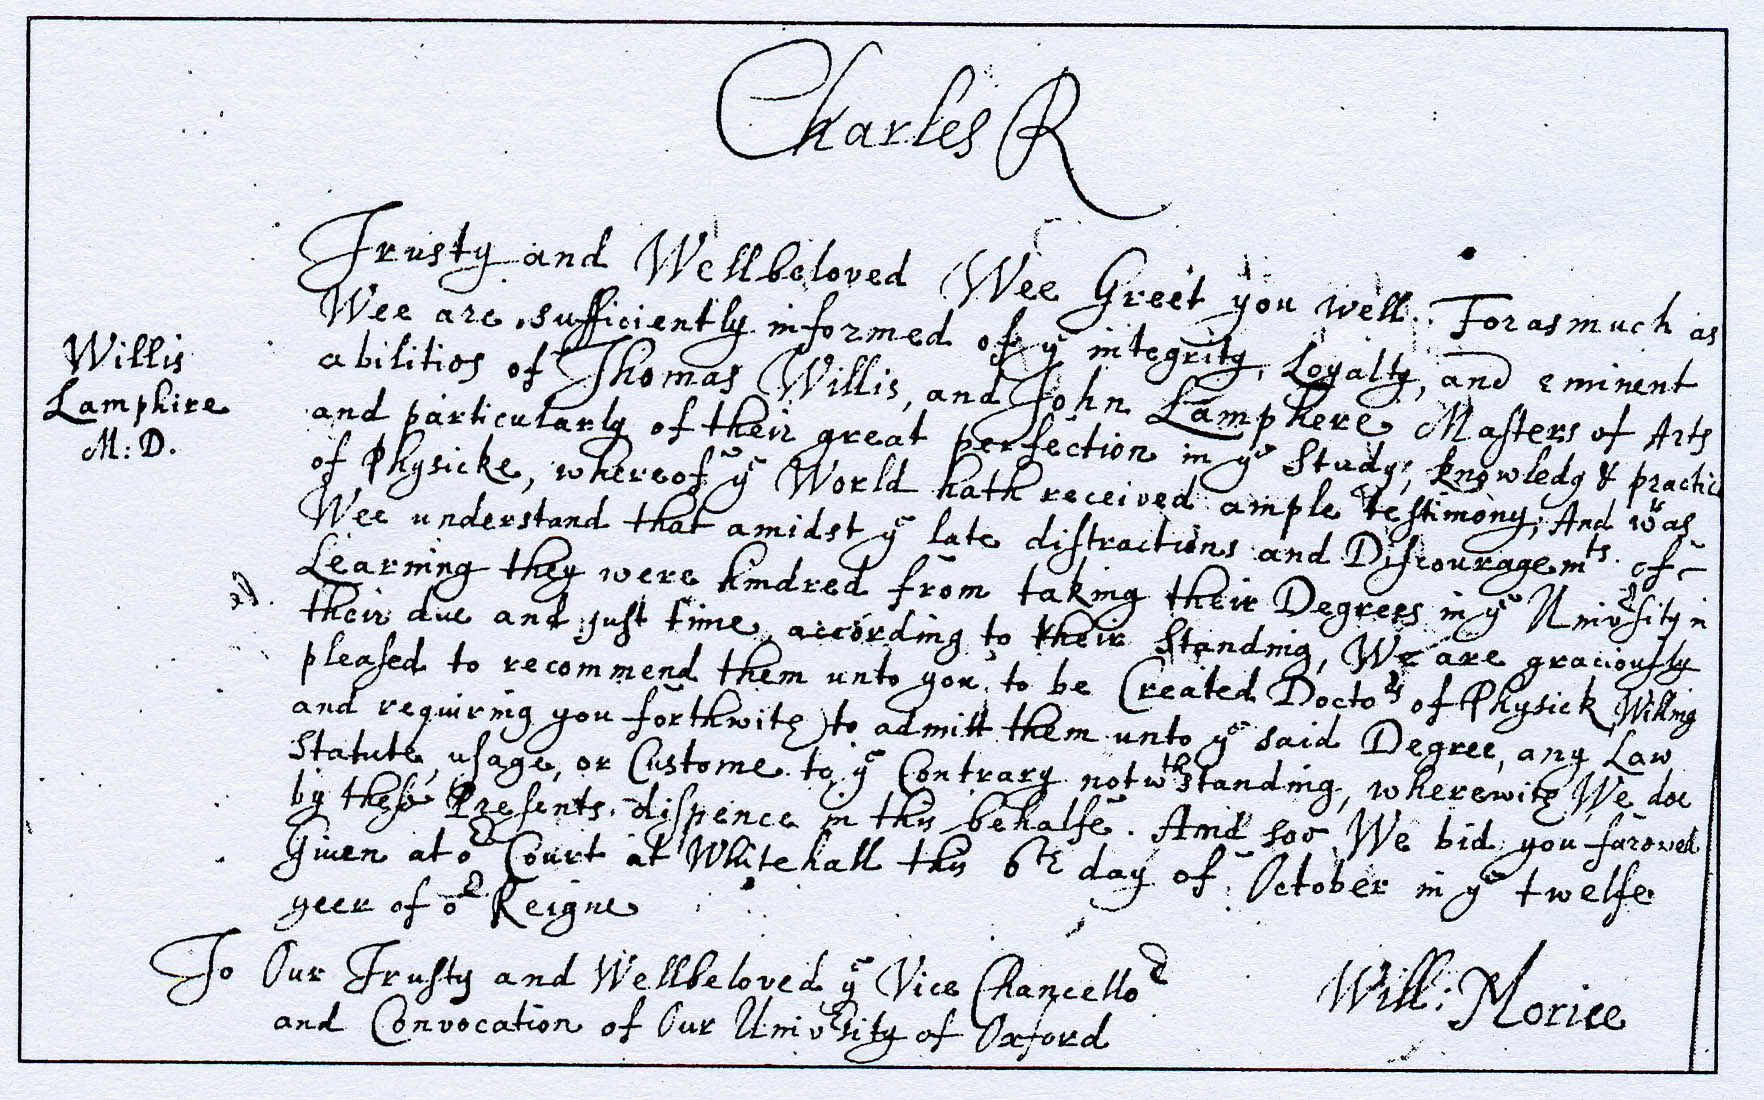 Charles R
Trusty and Wellbeloved Wee Greet you well. Forasmuch as
Wee are sufficiently informed of yᵉ integrity, Loyalty, and eminent
abilities of Thomas Willis, and John Lamphere Masters of Arts
and particularly of their great perfection in yᵉ Study, knowledg & practice
of Physicke, whereof yᵉ World hath received ample testimony, And wʳas
Wee understand that amidst yᵉ late distractions and Discouragemᵗˢ of
Learning they were hindred from taking their Degrees in yᵉ Univʳsity in
their due and just time, according to their Standing, We are graciously
pleased to recommend them unto you, to be Created Doctoʳˢ of Physick Willing
and requiring you forthwith to admitt them unto yᵉ said Degree, any Law
Statute, usage, or Custome to yᵉ Contrary notwᵗʰstanding, wherewith We doe
by these Presents dispence in this behalfe. And soe We bid you farewell
Given at oʳ Court at Whitehall this 6ᵗʰ day of October in yᵉ twelfe
yeer of oʳ Reigne
To Our Trusty and Wellbeloved yᵉ Vice Chancelloʳ
and Convocation of Our Univʳsity of Oxford
Will: Morice
Willis
Lamphire
M: D.